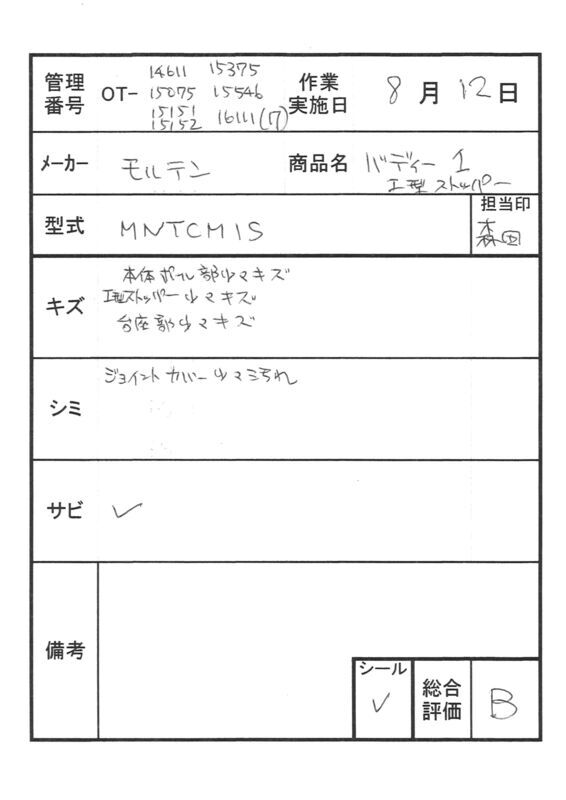 管理番号 OT- 14611 15375 15075 15546 15151 15152 16111(17) 作業実施日 8月12日
メーカー モルテン 商品名 バディー I
I型ストッパー
型式 MNTCM1S 担当印 森田
キズ 本体ポール部少々キズ
I型ストッパー少々キズ
台座部少々キズ
シミ ジョイントカバー少々汚れ
サビ ✓
備考
シール ✓ 総合評価 B